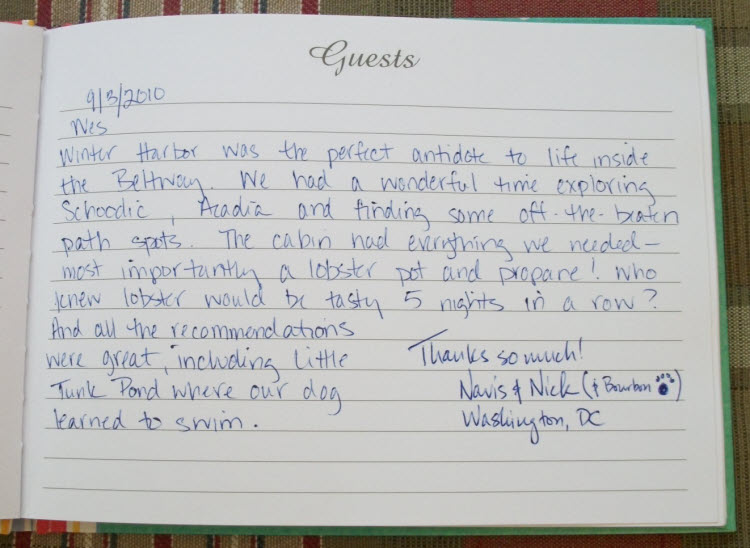 Guests
9/3/2010
Wes
Winter Harbor was the perfect antidote to life inside
the Beltway. We had a wonderful time exploring
Schoodic, Acadia and finding some off-the-beaten
path spots. The cabin had everything we needed—
most importantly a lobster pot and propane! Who
knew lobster would be tasty 5 nights in a row?
And all the recommendations
were great, including Little
Junk Pond where our dog
learned to swim.
Thanks so much!
Navis & Nick (& Bourbon)
Washington, DC